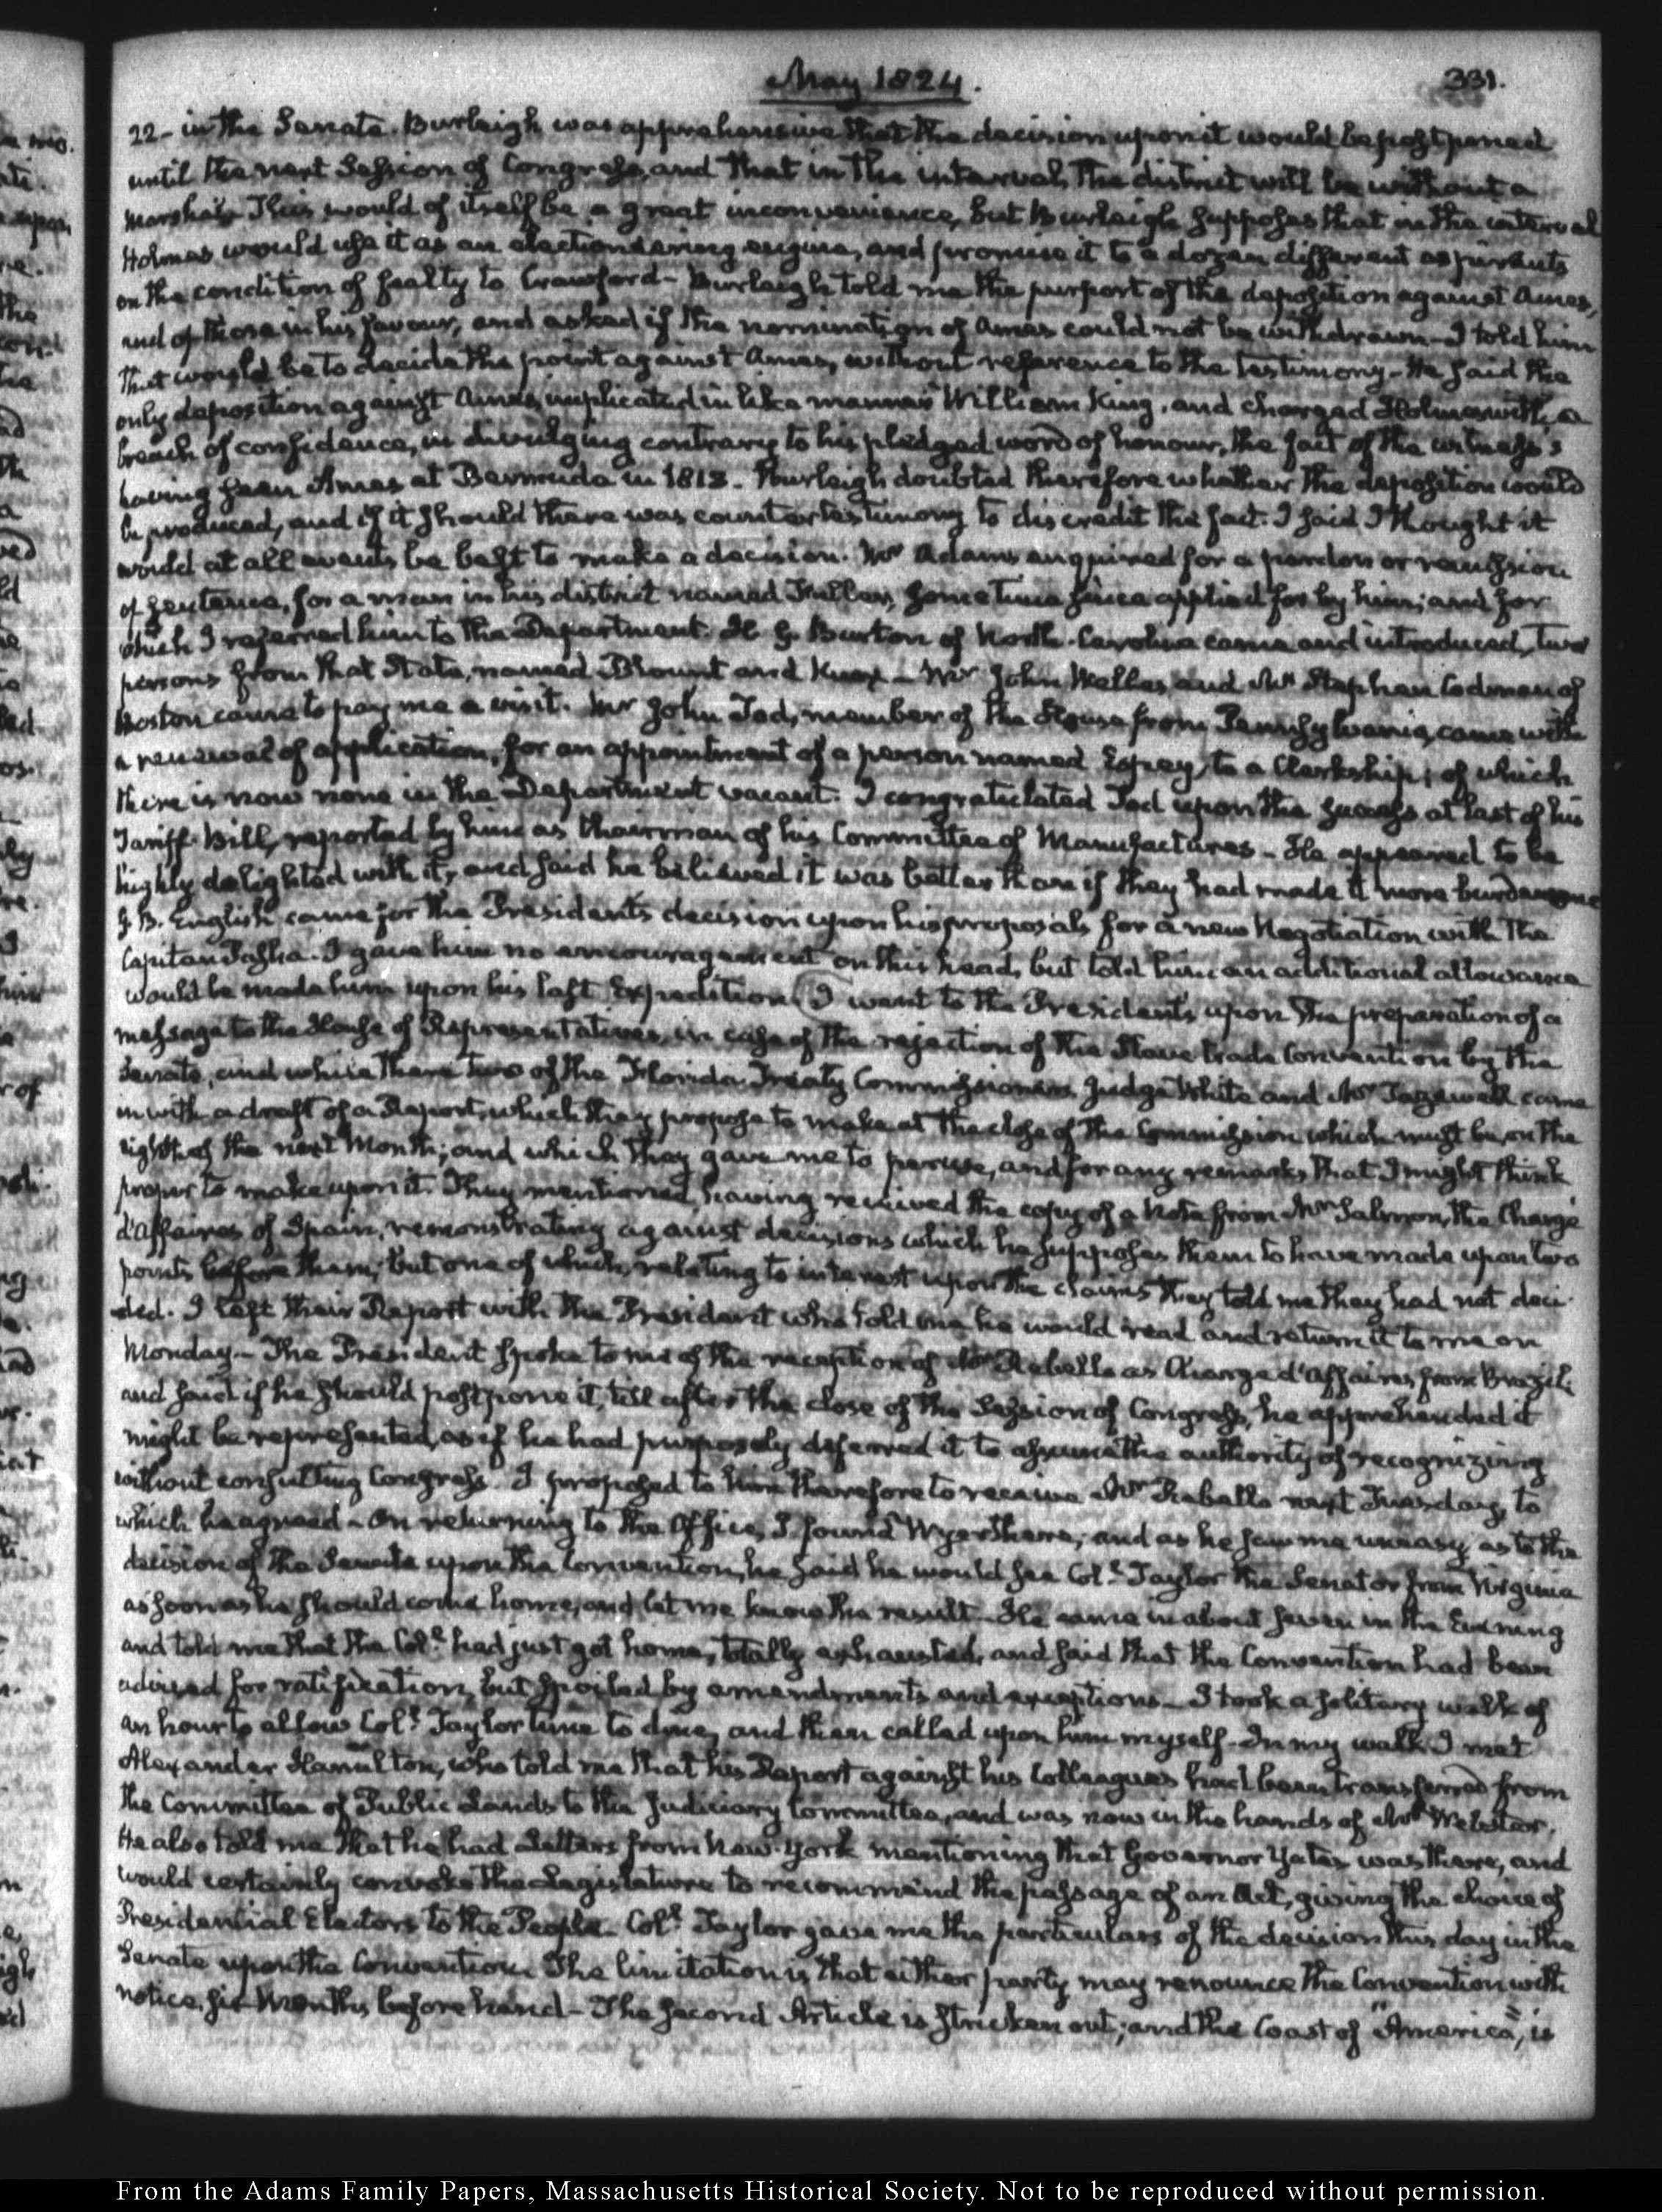 May 1824.
331.
22- in the Senate. Burleigh was apprehensive that the decision upon it would be postponed
until the next Session of Congress, and that in the interval, the district will be without a
Marshal. This would of itself be a great inconvenience, but Burleigh supposes that in the interval
Holmes would use it as an electioneering engine, and promise it to a dozen different aspirants
on the condition of fealty to Crawford- Burleigh told me the purport of the deposition against Ames,
and of those in his favour, and asked if the nomination of Ames could not be withdrawn- I told him
that would be to decide the point against Ames, without reference to the testimony- He said the
only deposition against Ames, implicated in like manner William King, and charged Holmes with a
breach of confidence, in divulging contrary to his pledged word of honour, the fact of the witness's
having seen Ames at Bermuda in 1813. Burleigh doubted therefore whether the deposition would
be produced, and if it should there was counter testimony to discredit the fact. I said I thought it
would at all events be best to make a decision. Mr Adams enquired for a pardon or remission
of sentence, for a man in his district named Fuller, some time since applied for by him; and for
which I referred him to the Department. H. G. Burton of North-Carolina came and introduced, two
persons from that State, named Blount and Knox- Mr John Welles, and Mr Stephen Codman of
Boston came to pay me a visit. Mr John Tod, member of the House from Pennsylvania, came with
a renewal of application, for an appointment of a person named Espey, to a Clerkship; of which
there is now none in the Department vacant. I congratulated Tod upon the success at last of his
Tariff-Bill, reported by him as Chairman of his Committee of Manufactures- He appeared to be
highly delighted with it, and said he believed it was better than if they had made it more burdensome
G. B. English came for the President's decision upon his proposals for a new Negotiation with the
Capitan Pasha. I gave him no encouragement on this head, but told him an additional allowance
would be made him upon his last Expedition. I went to the President's upon the preparation of a
message to the House of Representatives, in case of the rejection of the Slave trade Convention by the
Senate, and while there two of the Florida Treaty Commissioners Judge White and Mr Tazewell came
in with a draft of a Report, which they propose to make at the close of the Commission which must be on the
eighth of the next Month; and which they gave me to peruse, and for any remarks that I might think
proper to make upon it. They mentioned having received the copy of a Note from Mr Salmon, the Chargé
d'affaires of Spain, remonstrating against decisions which he supposes them to have made upon two
points before them; but one of which, relating to interest upon the claims they told me they had not deci-
ded. I left their Report with the President who told me he would read and return it to me on
Monday- The President spoke to me of the reception of Mr Rebello as Chargé d'Affaires from Brazil;
and said if he should postpone it, till after the close of the Session of Congress, he apprehended it
might be represented, as if he had purposely deferred it to assume the authority of recognizing
without consulting Congress. I proposed to him therefore to receive Mr Rebello next Tuesday, to
which he agreed- On returning to the Office, I found Wyer there; and as he saw me uneasy, as to the
decision of the Senate upon the Convention, he said he would see Coll. Taylor the Senator from Virginia
as soon as he should come home, and let me know the result- He came in about seven in the Evening
and told me that the Coll. had just got home, totally exhausted, and said that the Convention had been
advised for ratification, but spoiled by amendments and exceptions- I took a solitary walk of
an hour to allow Coll. Taylor time to dine, and then called upon him myself- In my walk I met
Alexander Hamilton, who told me that his Report against his Colleagues had been transferred from
the Committee of Public Lands to the Judiciary Committee, and was now in the hands of Mr Webster.
He also told me that he had Letters from New-York mentioning that Governor Yates was there, and
would certainly convoke the Legislature to recommend the passage of an Act, giving the choice of
Presidential Electors to the People- Coll. Taylor gave me the particulars of the decision this day in the
Senate upon the Convention. The limitation is that either party may renounce the Convention with
notice six Months beforehand- The second Article is stricken out; and the Coast of "America", is
From the Adams Family Papers, Massachusetts Historical Society. Not to be reproduced without permission.